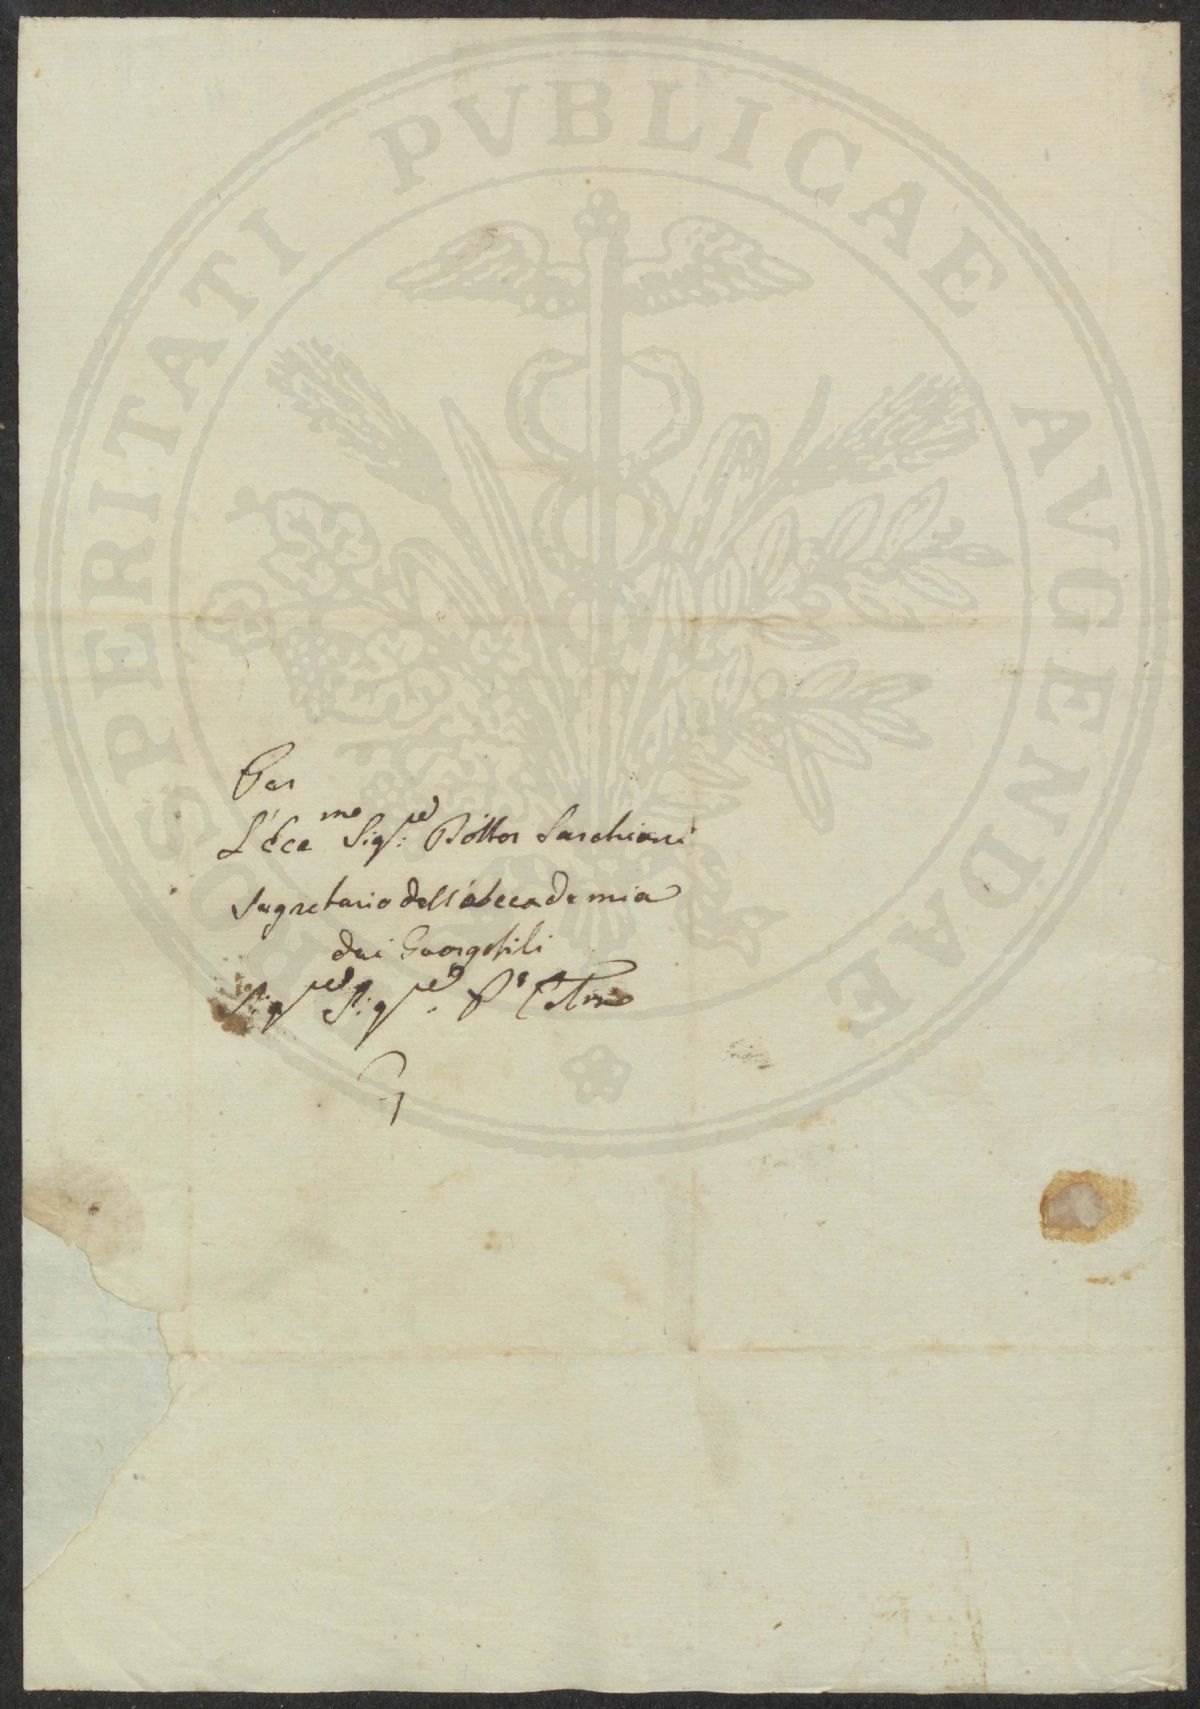 PROSPERITATI PVBLICAE AVGENDAE
Per
L'Ecc.mo Sig.re Dottor Sarchiani
Segretario dell'Accademia
dei Georgofili
Sig.re Sig.re P.e